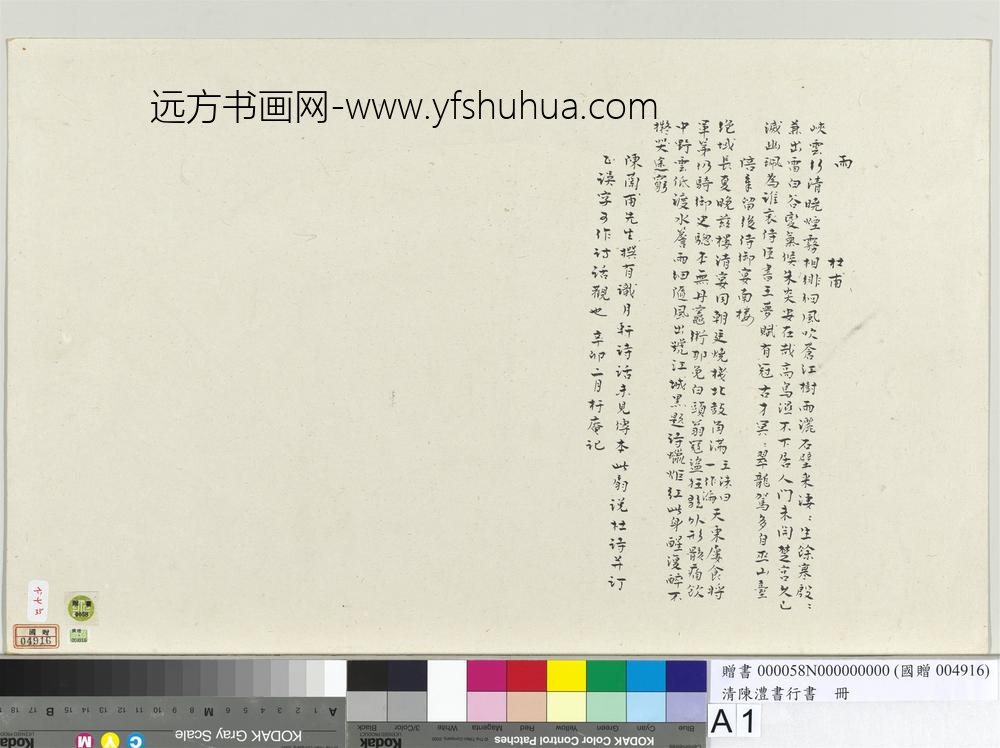 雨
杜甫
峽雲行清曉煙霧相徘徊風吹蒼江樹雨灑石壁來淒〻生餘寒殷〻
兼出雷白谷變氣候朱炎安在哉高鳥溼不下居人門未開楚宮久已
滅幽珮為誰哀侍臣書王夢賦有冠古才冥〻翠龍駕多自巫山臺
陪章留後侍御宴南樓
絕域長夏晚茲樓清宴同朝廷燒棧北鼓角滿王洙曰一作漏天東屢食將
軍第仍騎御史驄本無丹竈術那免白頭翁冦盜狂歌外形骸痛飲
中野雲低渡水簷雨細隨風出號江城黑題詩蠟炬紅此身醒復醉不
擬哭途窮
陳蘭甫先生撰有識月軒詩話未見傳本此扇說杜詩并訂
正誤字可作詩話觀也 辛卯二月 庵記
远方书画网-www.yfshuhua.com
國贈
04916
贈書 000058N000000000 (國贈 004916)
清陳澧書行書 冊
A 1
KODAK Gray Scale
KODAK Color Control Patches
Kodak
Blue
Cyan
Green
Yellow
Red
Magenta
White
3/Color
Black